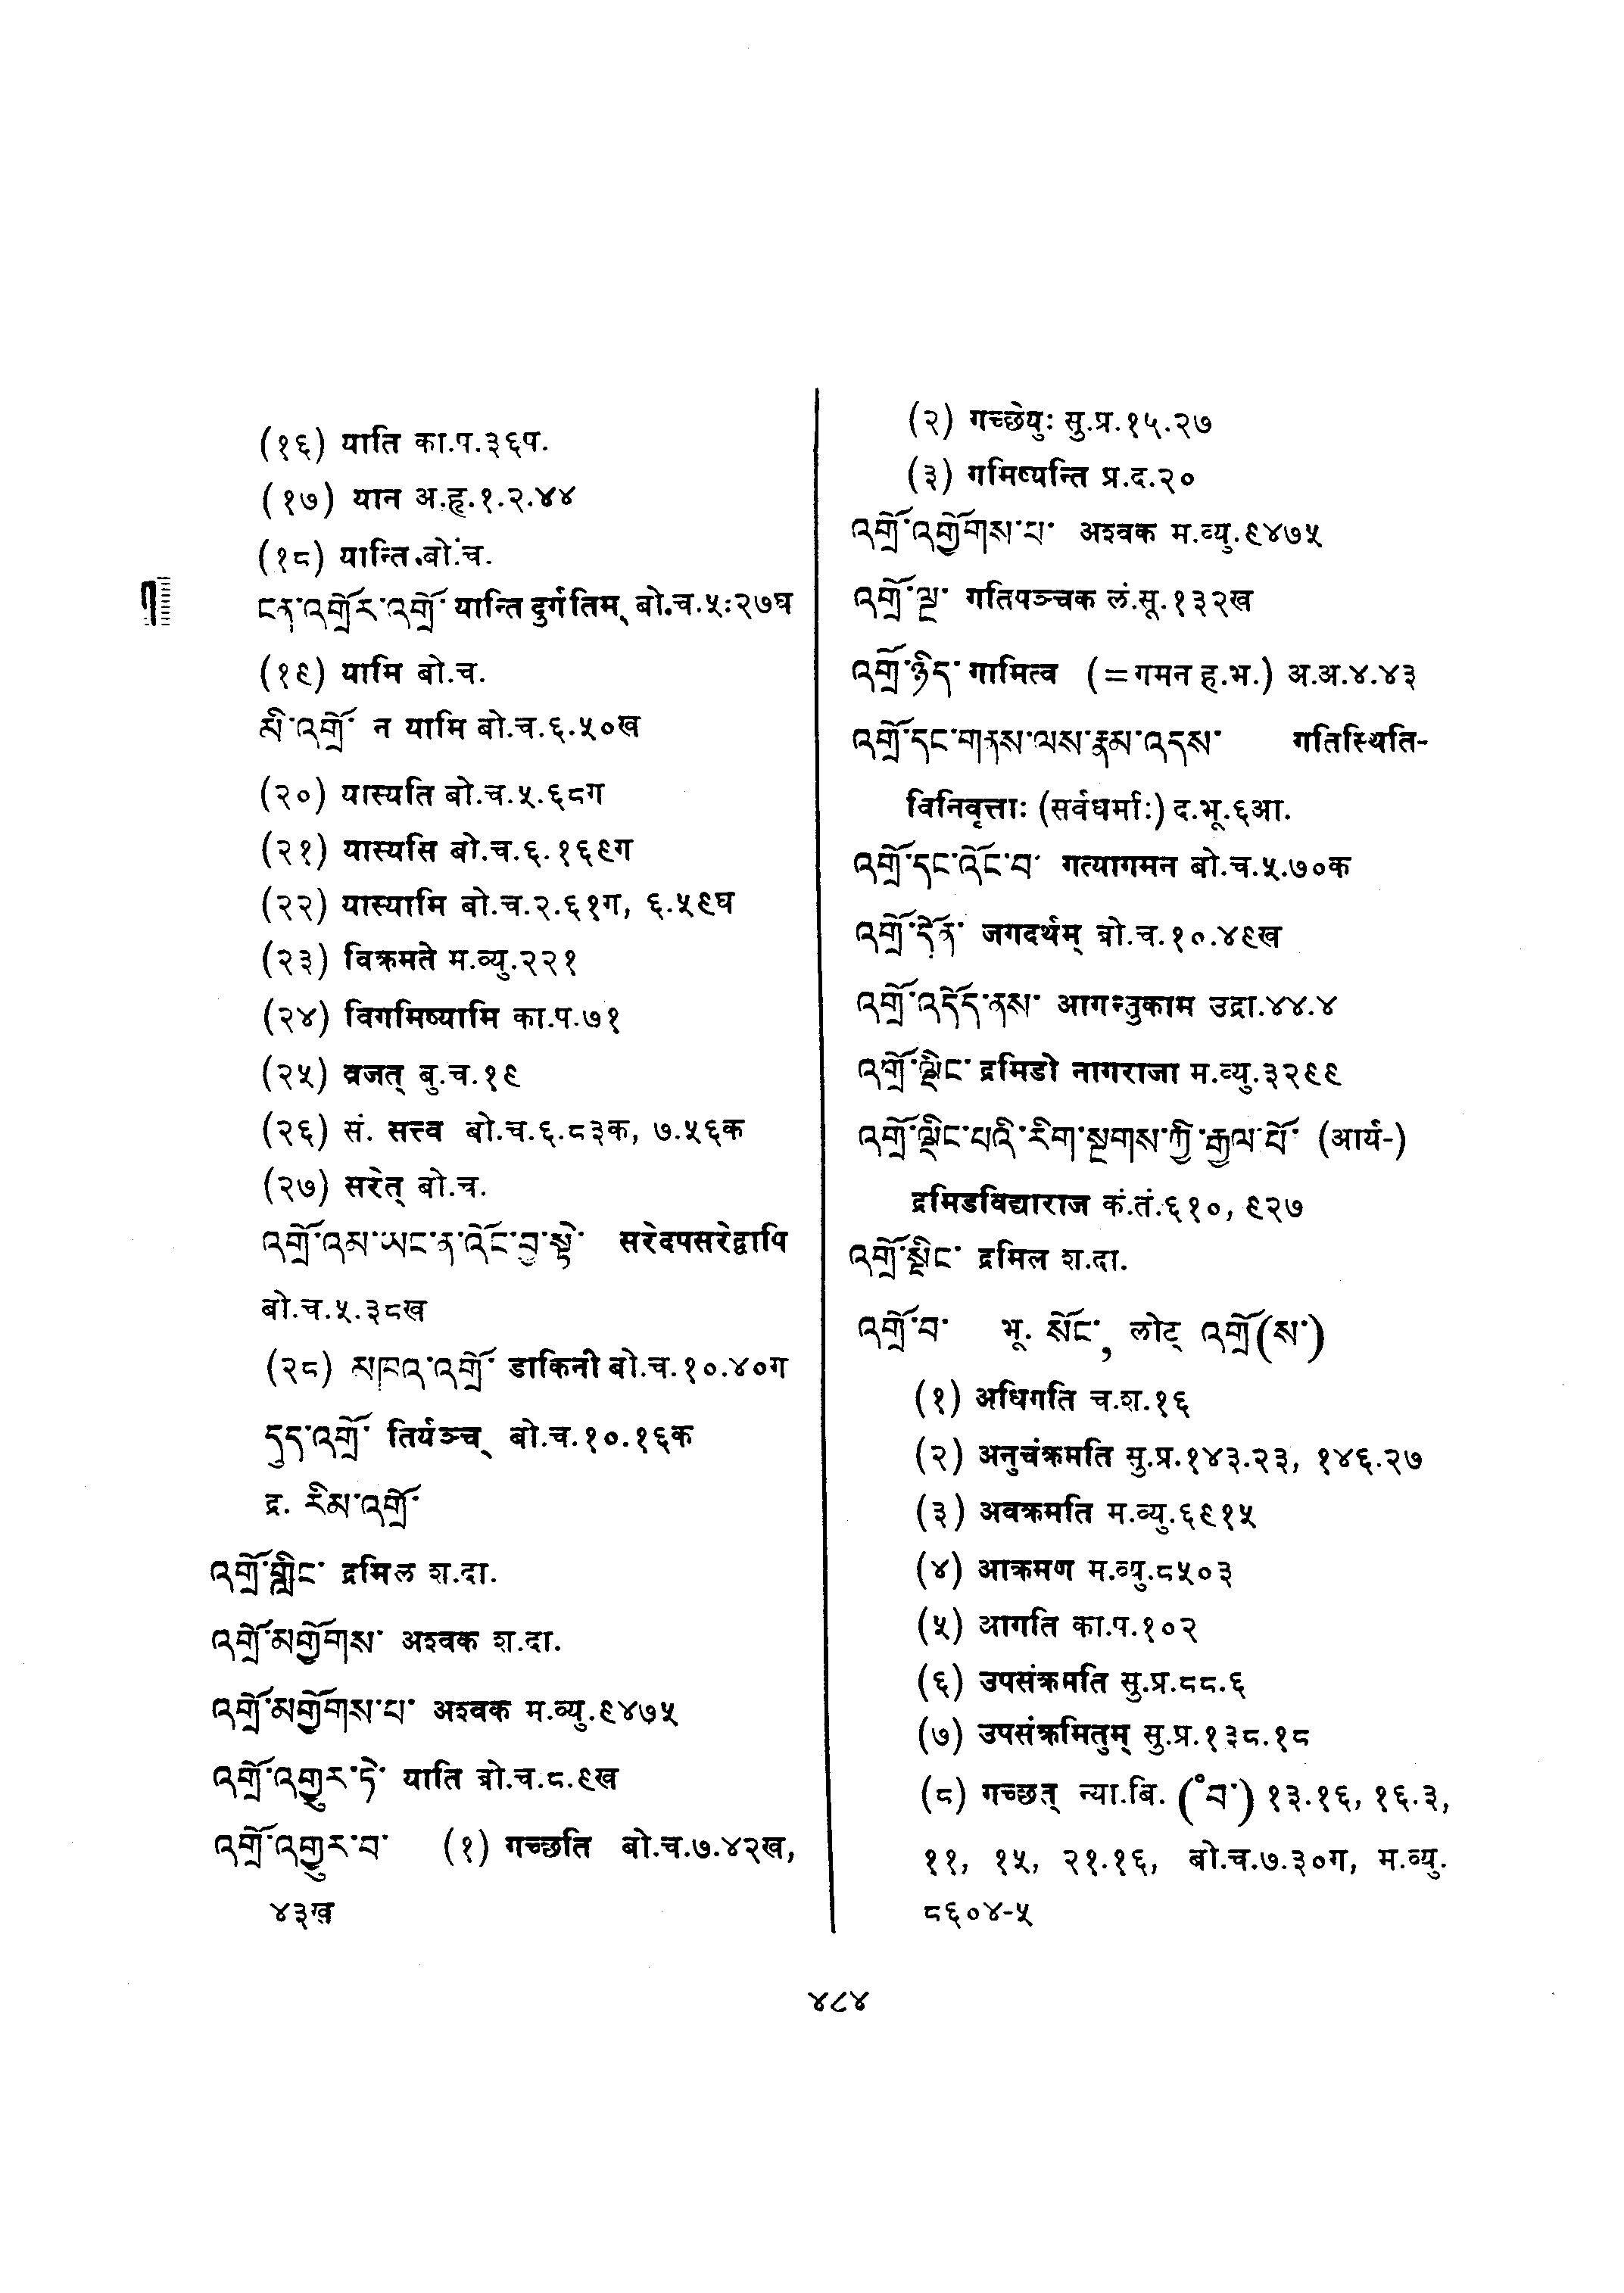 (१६) याति का.प.३६प.
(१७) यान अ.हृ.१.२.४४
(१८) यान्ति.बो.च.
ངན་འགྲོར་འགྲོ་ यान्ति दुर्गतिम् बो.च.५:२७घ
(१९) यामि बो.च.
མི་འགྲོ་ न यामि बो.च.६.५०ख
(२०) यास्यति बो.च.५.६८ग
(२१) यास्यसि बो.च.६.१६९ग
(२२) यास्यामि बो.च.२.६१ग, ६.५९घ
(२३) विक्रमते म.व्यु.२२१
(२४) विगमिष्यामि का.प.७१
(२५) व्रजत् बु.च.१९
(२६) सं. सत्त्व बो.च.६.८३क, ७.५६क
(२७) सरेत् बो.च.
འགྲོ་འམ་ཡང་ན་འོང་བྱ་སྟེ་ सरेदपसरेद्वापि
बो.च.५.३८ख
(२८) མཁའ་འགྲོ་ डाकिनी बो.च.१०.४०ग
དུད་འགྲོ་ तिर्यञ्च् बो.च.१०.१६क
द्र. རིམ་འགྲོ་
འགྲོ་གླིང་ द्रमिल श.दा.
འགྲོ་མགྱོགས་ अश्वक श.दा.
འགྲོ་མགྱོགས་པ་ अश्वक म.व्यु.९४७५
འགྲོ་འགྱུར་ཏེ་ याति बो.च.८.९ख
འགྲོ་འགྱུར་བ་ (१) गच्छति बो.च.७.४२ख,
४३ख
(२) गच्छेयुः सु.प्र.१५.२७
(३) गमिष्यन्ति प्र.द.२०
འགྲོ་འགྱོགས་པ་ अश्वक म.व्यु.९४७५
འགྲོ་ལྔ་ गतिपञ्चक लं.सू.१३२ख
འགྲོ་ཉིད་ गामित्व (=गमन ह.भ.) अ.अ.४.४३
འགྲོ་དང་གནས་ལས་རྣམ་འདས་ गतिस्थिति-
विनिवृत्ताः (सर्वधर्माः) द.भू.६आ.
འགྲོ་དང་འོང་བ་ गत्यागमन बो.च.५.७०क
འགྲོ་དོན་ जगदर्थम् बो.च.१०.४९ख
འགྲོ་འདོད་ནས་ आगन्तुकाम उद्रा.४४.४
འགྲོ་ལྡིང་ द्रमिडो नागराजा म.व्यु.३२९९
འགྲོ་ལྡིང་པའི་རིག་སྔགས་ཀྱི་རྒྱལ་པོ་ (आर्य-)
द्रमिडविद्याराज कं.तं.६१०, ९२७
འགྲོ་སྡིང་ द्रमिल श.दा.
འགྲོ་བ་ भू. སོང་, लोट् འགྲོ(ས་)
(१) अधिगति च.श.१६
(२) अनुचंक्रमति सु.प्र.१४३.२३, १४६.२७
(३) अवक्रमति म.व्यु.६९१५
(४) आक्रमण म.व्यु.८५०३
(५) आगति का.प.१०२
(६) उपसंक्रमति सु.प्र.८८.६
(७) उपसंक्रमितुम् सु.प्र.१३८.१८
(८) गच्छत् न्या.बि. (°བ་) १३.१६, १६.३,
११, १५, २१.१६, बो.च.७.३०ग, म.व्यु.
८६०४-५
४८४